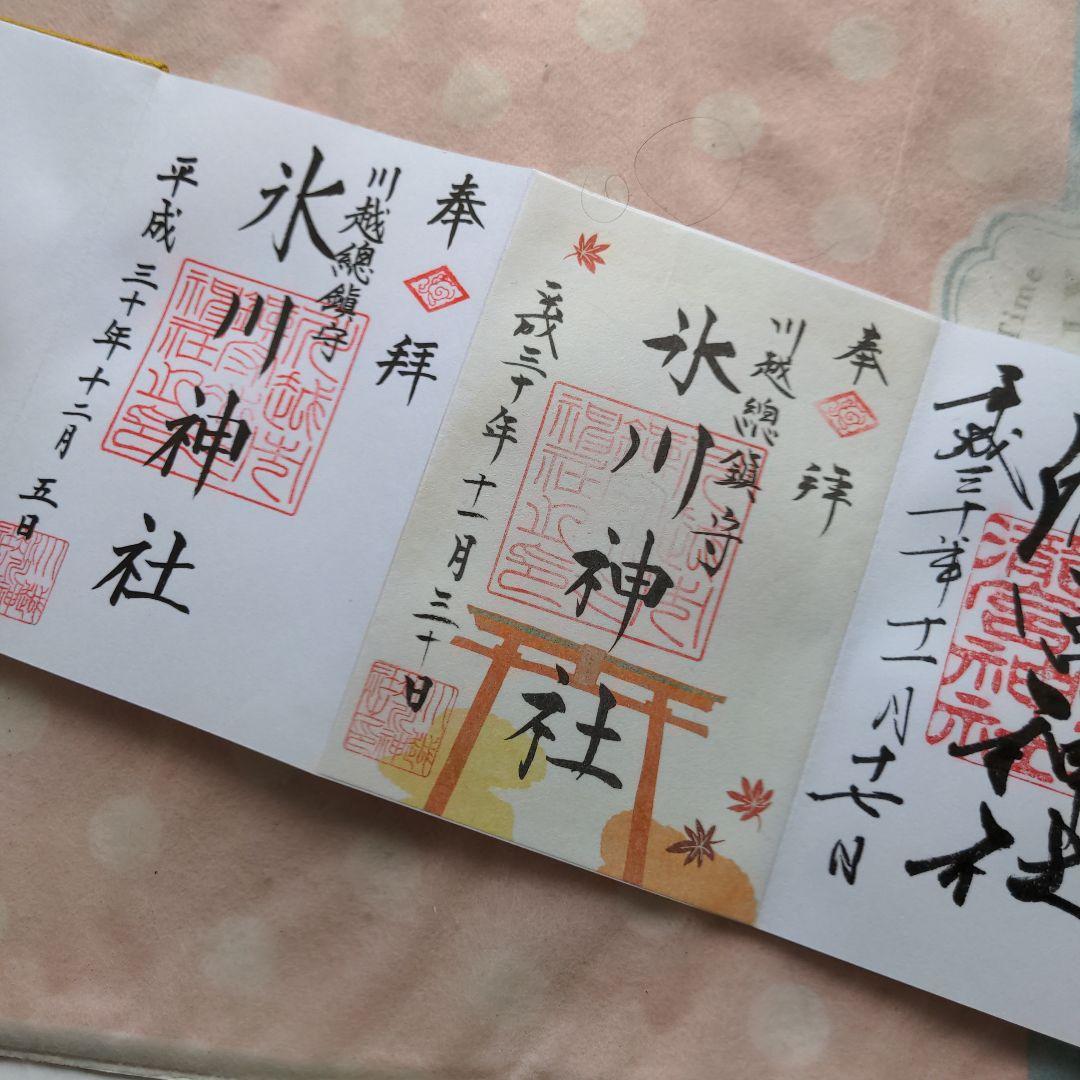 奉拝
川越總鎮守
氷川神社
平成三十年十二月五日
奉拝
川越總鎮守
氷川神社
平成三十年十一月三十日
神社
平成三十年十一月十七日
Time